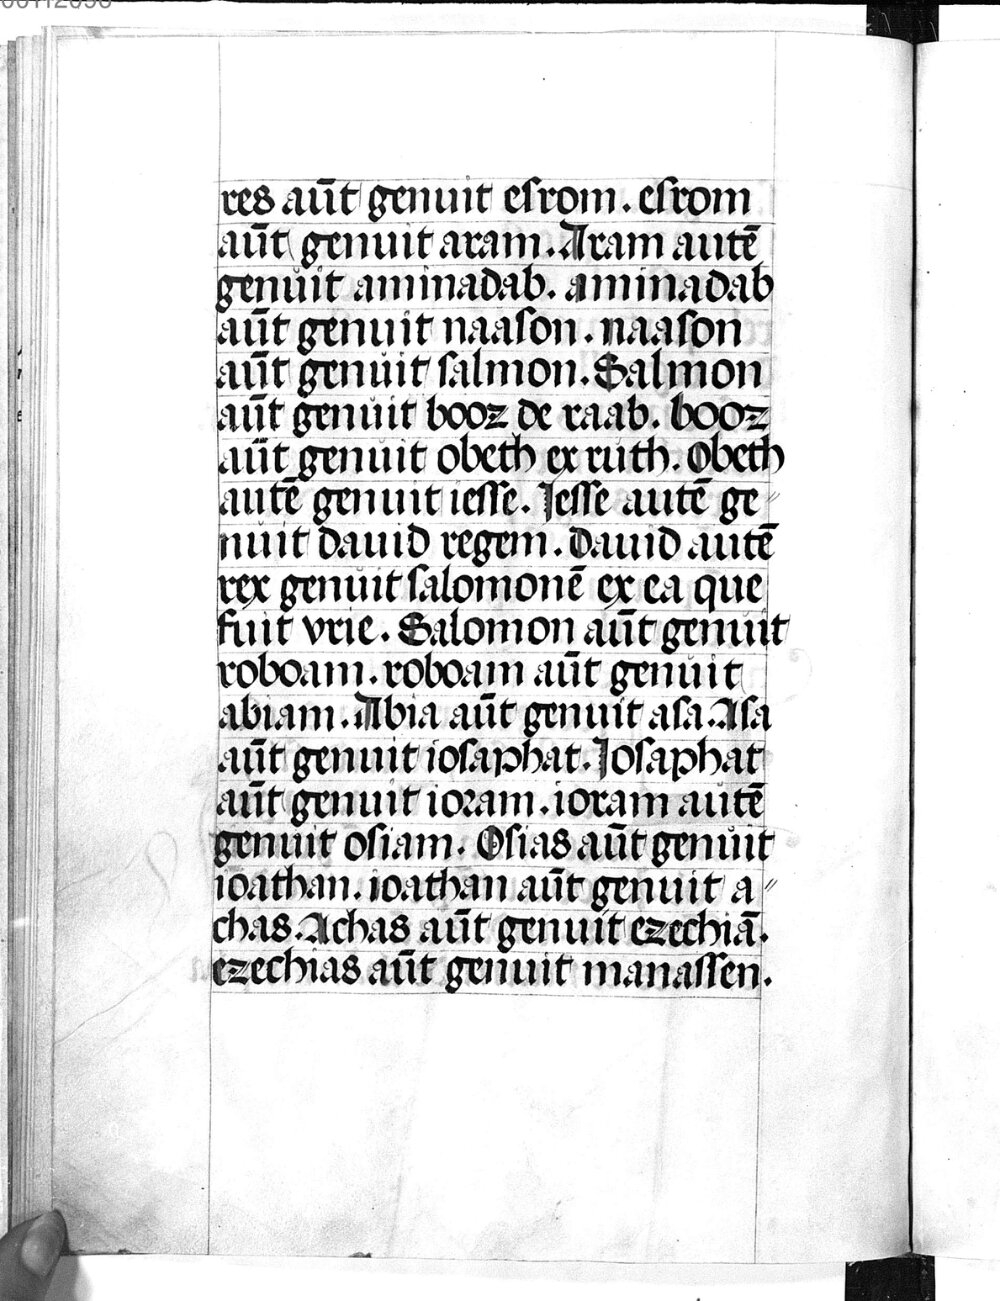 res aūt genuit esrom. esrom
aūt genuit aram. Aram autē
genuit aminadab. aminadab
aūt genuit naason. naason
aūt genuit salmon. Salmon
aūt genuit booz de raab. booz
aūt genuit obeth ex ruth. Obeth
autē genuit iesse. Jesse autē ge〃
nuit dauid regem. Dauid autē
rex genuit salomonē ex ea que
fuit vrie. Salomon aūt genuit
roboam. roboam aūt genuit
abiam. Abia aūt genuit asa. Asa
aūt genuit iosaphat. Josaphat
aūt genuit ioram. ioram autē
genuit osiam. Osias aūt genuit
ioathan. ioathan aūt genuit a〃
chas. Achas aūt genuit ezechiā.
ezechias aūt genuit manassen.